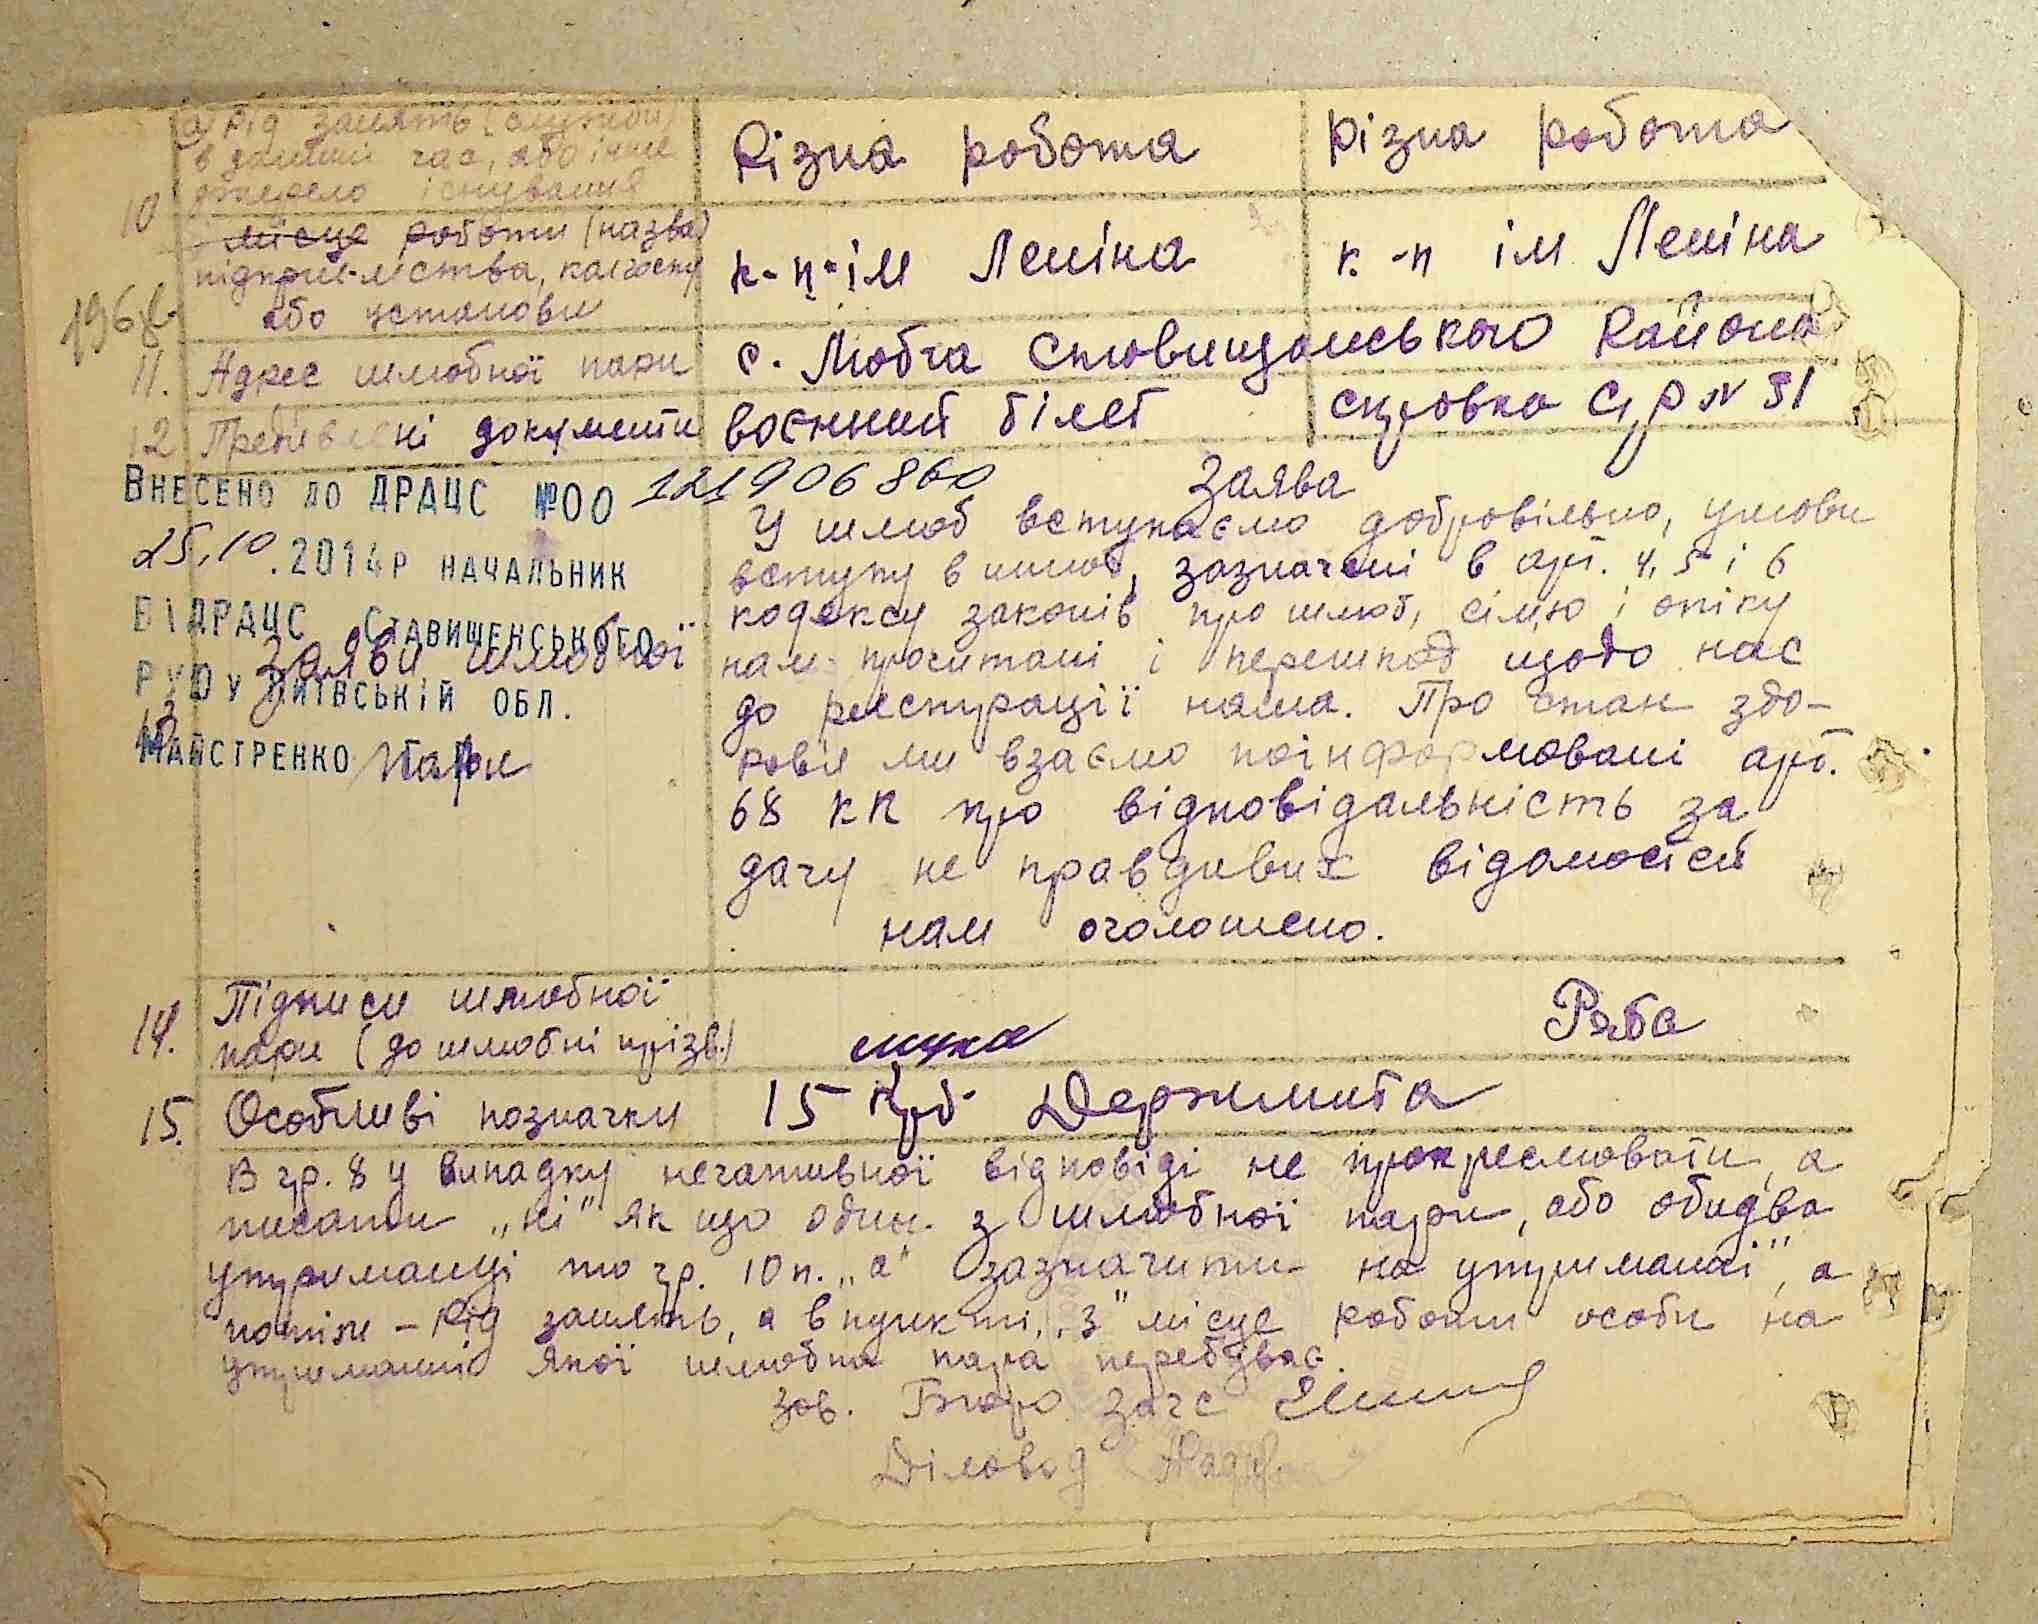 а) Рід занять (служби) Різна робота Різна робота
в даний час, або інше
джерело існування
10
місце роботи (назва) к-п ім Леніна к-п ім Леніна
підприємства, колгоспу
або установи
196
11. Адрес шлюбної пари с. Любча Стовищанського Района
12 Предявлені документи воєнний білет справка С/Р N 31
Внесено до ДРАЦС №00 121906860
25.10.2014р начальник
ВІДРАЦС Ставищенського
РУЮ у Київській обл.
Майстренко
Заява шлюбної
пари
Заява
У шлюб вступаємо добровільно, умови
вступу в шлюб, зазначені в арт. 4, 5 і 6
кодексу законів про шлюб, сімю і опіку
нам прочитані і перешкод щодо нас
до реєстрації нама. Про стан здо-
ровя ми взаємо поінформовані арт.
68 КК про відповідальність за
дачу не правдивих відомостей
нам оголошено.
14. Підписи шлюбної
пари (до шлюбні прізв.) Ряба
15. Особливі позначки 15 крб Держмита
В гр. 8 у випадку негативної відповіді не прокреслювати, а
писати „ні" як що один з шлюбної пари, або обидва
утриманці то гр. 10 п. „а" зазначити на утриманні", а
потім – Рід занять, а в пункті „з" місце роботи особи на
утриманні якої шлюбна пара перебуває.
Зов. Бюро Загс
Діловод